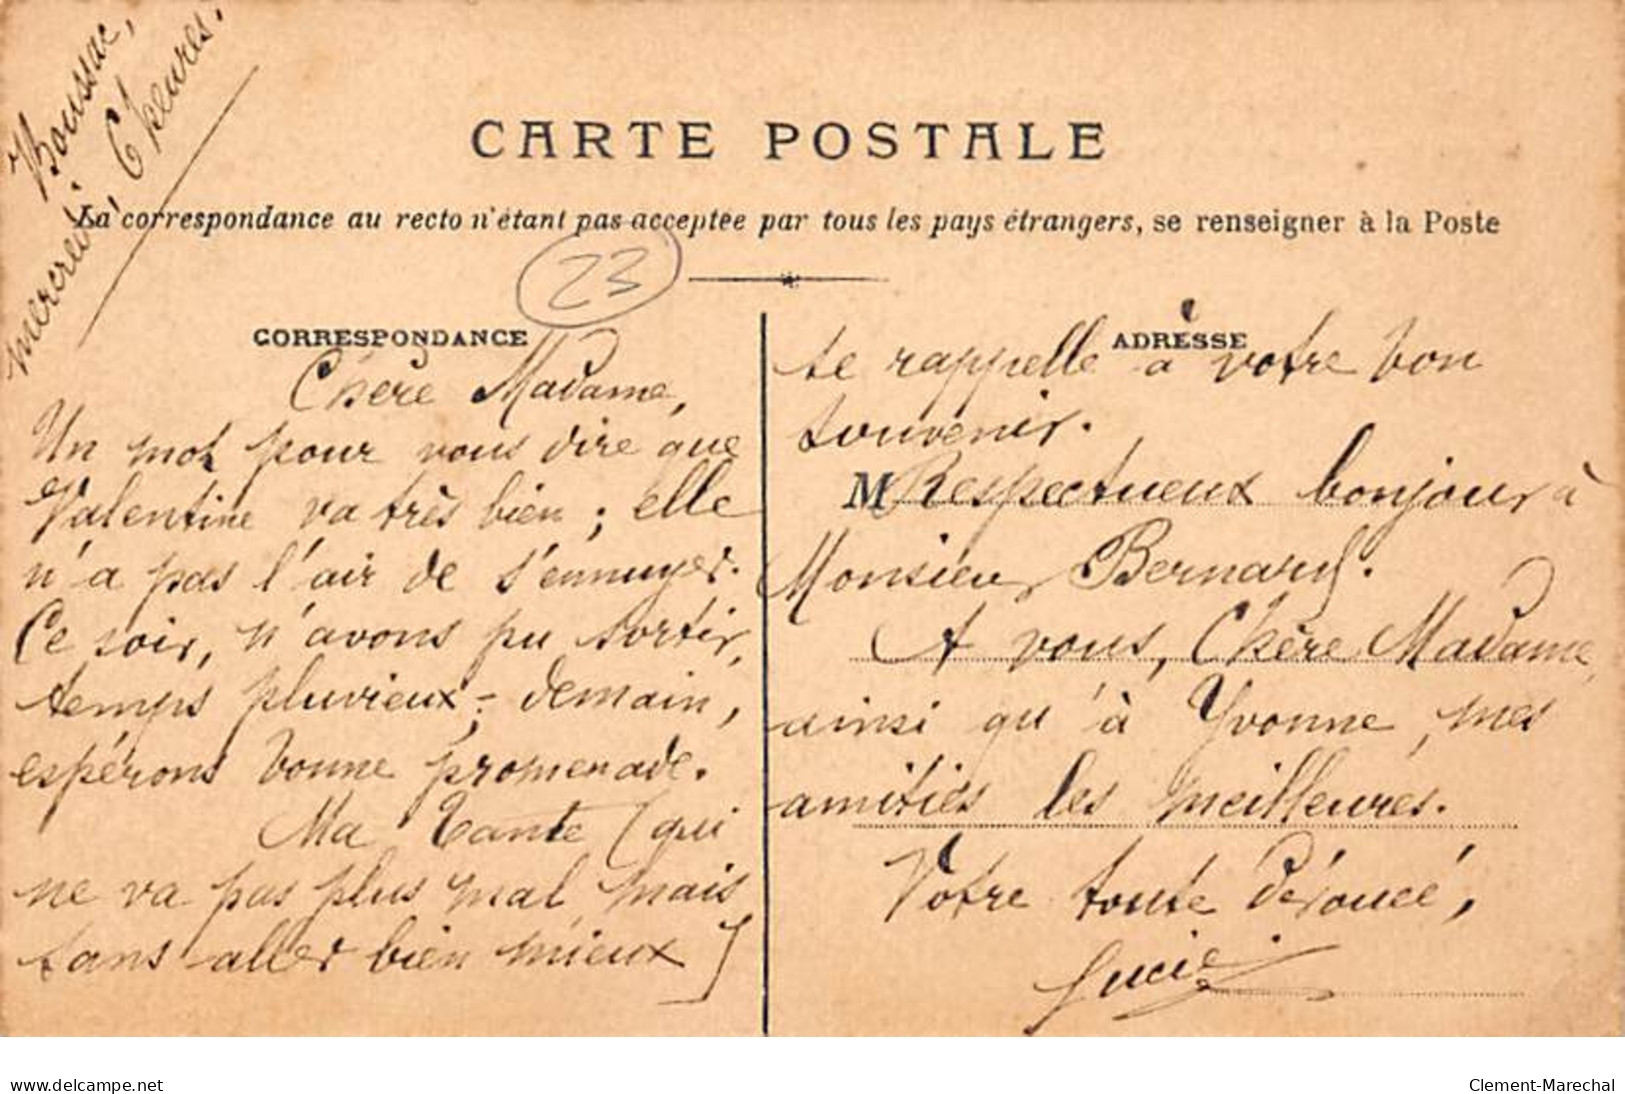 Boussac,
mercredi, 6 heures.
CARTE POSTALE
La correspondance au recto n'étant pas acceptée par tous les pays étrangers, se renseigner à la Poste
23
CORRESPONDANCE
Chère Madame,
Un mot pour vous dire que
Valentine va très bien ; elle
n'a pas l'air de s'ennuyer.
Ce soir, n'avons pu sortir,
temps pluvieux ; demain,
espérons bonne promenade.
Ma Tante (qui
ne va pas plus mal, mais
sans aller bien mieux)
ADRESSE
se rappelle à votre bon
souvenir.
M Respectueux bonjour à
Monsieur Bernard.
A vous, Chère Madame,
ainsi qu'à Yvonne, mes
amitiés les meilleures.
Votre toute dévouée,
Lucie
delcampe.net
Clement-Marechal